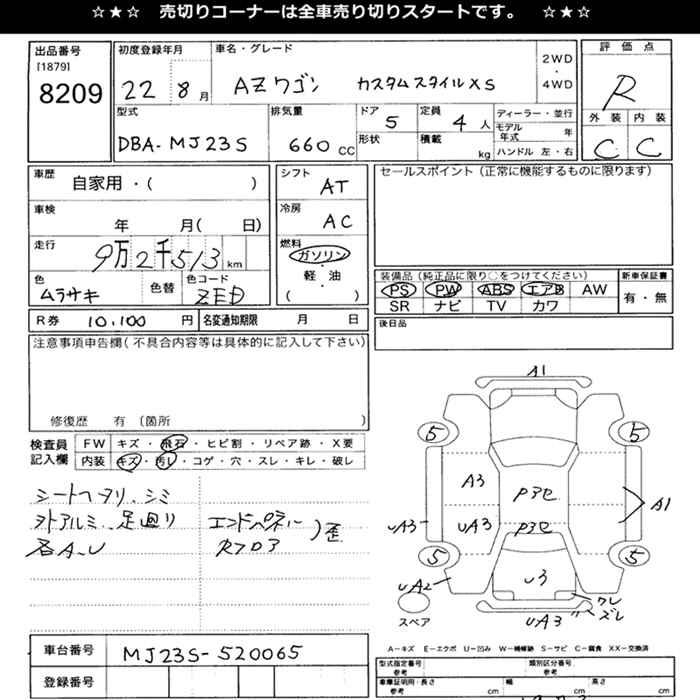 ☆★☆ 売切りコーナーは全車売り切りスタートです。 ☆★☆
出品番号
[1879]
8209
初度登録年月
22 8月
車名・グレード
AZワゴン カスタムスタイルXS
2WD
・
4WD
評価点
R
外装 内装
C C
型式
DBA-MJ23S
排気量
660 CC
ドア
5
形状
定員
4人
積載
kg
ディーラー・並行
モデル年式 年
ハンドル 左・右
車歴
自家用・( )
車検
年 月( 日)
走行
9万2千513 km
色
ムラサキ
色替
色コード
ZED
シフト
AT
冷房
AC
燃料
ガソリン
・
軽・油
( )
セールスポイント(正常に機能するものに限ります)
装備品(純正品に限り○をつけてください)
PS PW ABS エアB AW
SR ナビ TV カワ
新車保証書
有・無
R券 10,100 円
名変通知期限 月 日
後日品
注意事項申告欄(不具合内容等は具体的に記入して下さい)
修復歴 有 (箇所
検査員記入欄
FW キズ・飛石・ヒビ割・リペア跡・X要
内装 キズ・汚レ・コゲ・穴・スレ・キレ・破レ
シートヘタリ、シミ
外アルミ、足廻り
各A、U
エンドパネル
Rフロア
)歪
A1
5
5
A3
P3セ
A1
UA3
UA3
P3セ
5
5
UA2
U3
クレ
ズレ
UA3
スペア
車台番号 MJ23S-520065
登録番号
A-キズ E-エクボ U-凹み W-補修跡 S-サビ C-腐食 XX-交換済
型式指定番号
参考
類別区分番号
参考
車庫証明用・長さ
参考 cm
幅
cm
高さ
cm